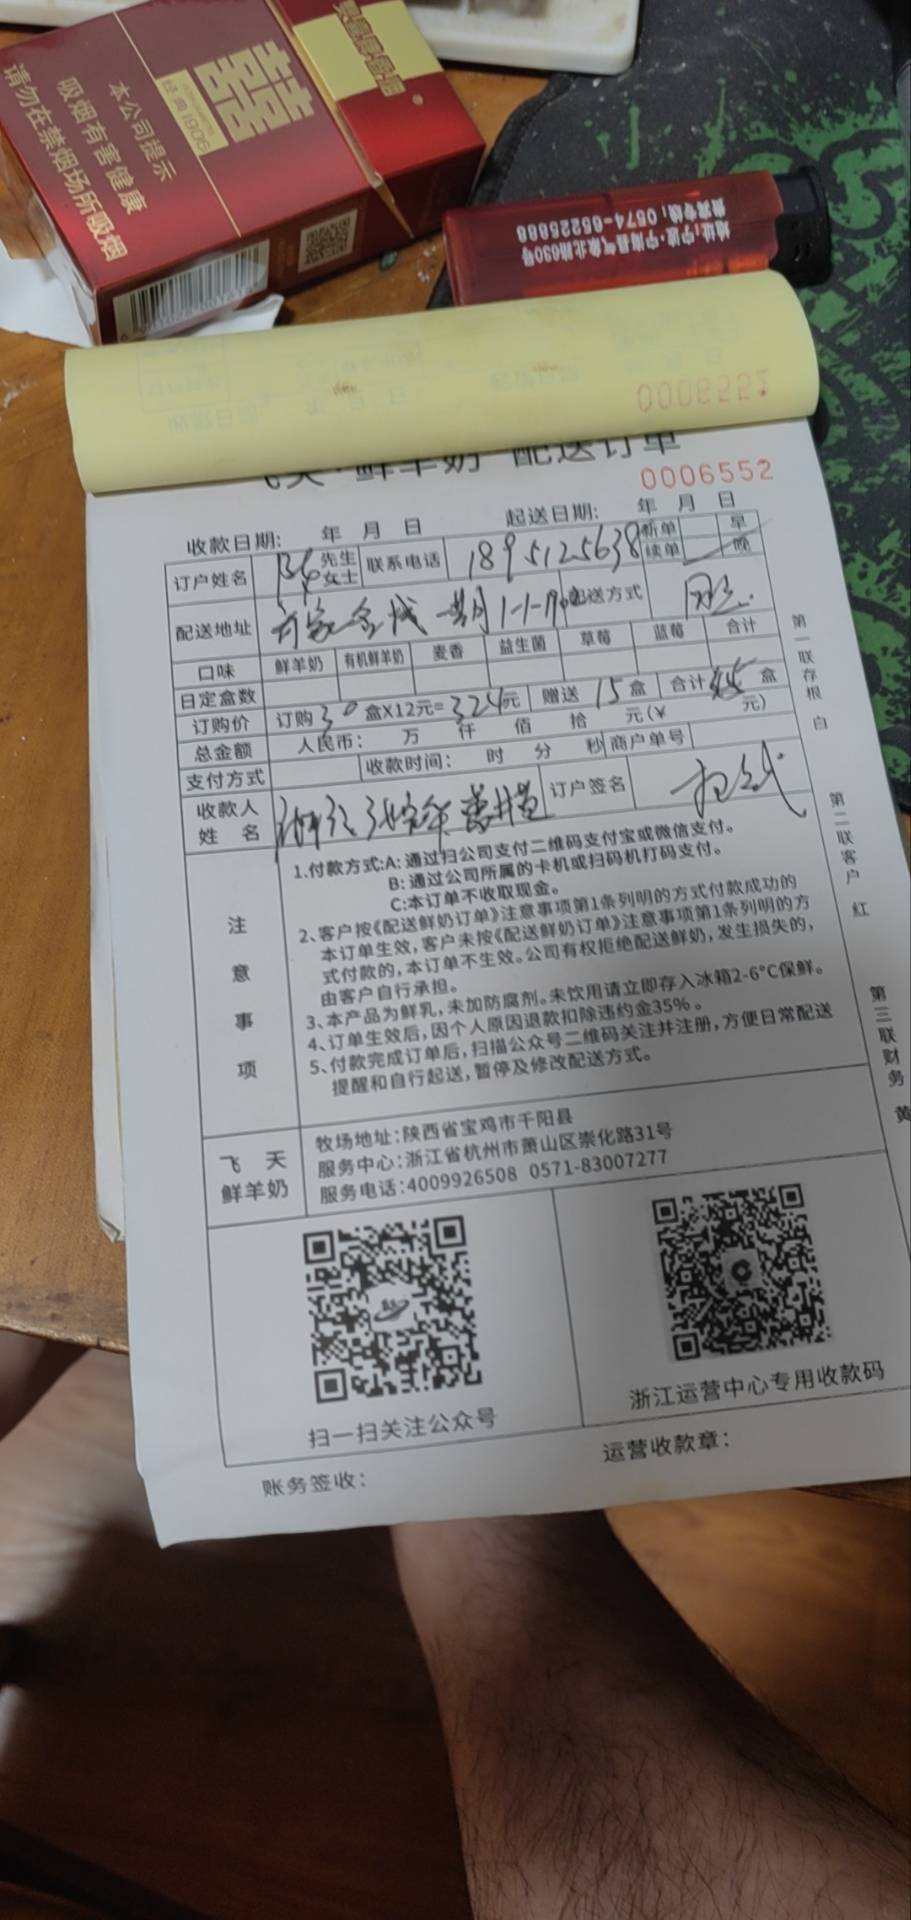 囍
经典1906
本公司提示
吸烟有害健康
请勿在禁烟场所吸烟
地址:宁波·宁海县气象北路630号
0574-65225888
飞天·鲜羊奶 配送订单
0006552
收款日期: 年 月 日 起送日期: 年 月 日
订户姓名 先生 女士 联系电话 1895125638 新单 续单 早 晚
配送地址 配送方式
口味 鲜羊奶 有机鲜羊奶 麦香 益生菌 草莓 蓝莓 合计
日定盒数
订购价 订购30盒X12元=324元 赠送15盒 合计45盒
总金额 人民币: 万 仟 佰 拾 元(¥ 元)
支付方式 收款时间: 时 分 秒 商户单号
收款人姓名 订户签名
注意事项
1.付款方式:A:通过扫公司支付二维码支付宝或微信支付。
B:通过公司所属的卡机或扫码机打码支付。
C:本订单不收取现金。
2、客户按《配送鲜奶订单》注意事项第1条列明的方式付款成功的
本订单生效,客户未按《配送鲜奶订单》注意事项第1条列明的方
式付款的,本订单不生效。公司有权拒绝配送鲜奶,发生损失的,
由客户自行承担。
3、本产品为鲜乳,未加防腐剂。未饮用请立即存入冰箱2-6°C保鲜。
4、订单生效后,因个人原因退款扣除违约金35%。
5、付款完成订单后,扫描公众号二维码关注并注册,方便日常配送
提醒和自行起送,暂停及修改配送方式。
第一联存根 白
第二联客户 红
第三联财务 黄
飞天
鲜羊奶
牧场地址:陕西省宝鸡市千阳县
服务中心:浙江省杭州市萧山区崇化路31号
服务电话:4009926508 0571-83007277
扫一扫关注公众号
浙江运营中心专用收款码
账务签收:
运营收款章: